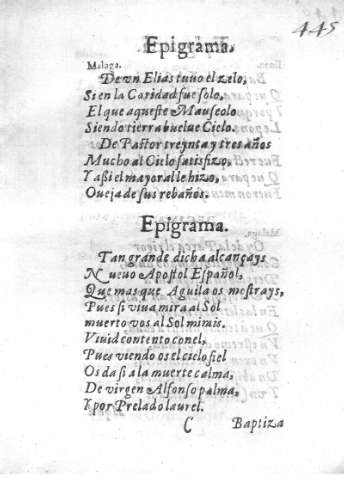 445
Epigrama.
Malaga.
De vn Elias tuuo el zelo,
Si en la Caridad fue solo,
El que aqueste Mauseolo
Siendo tierra buelue Cielo.
De Pastor treynta y tres años
Mucho al Cielo satisfizo,
Y assi el mayoral le hizo,
Oueja de sus rebaños.
Epigrama.
Tan grande dicha alcançays
Nueuo Apostol Español,
Que mas que Aguila os mostrays,
Pues si viua mira al Sol
muerto vos al Sol mirais.
Viuid contento con el,
Pues viendo os el cielo fiel
Os da si a la muerte calma,
De virgen Alfonso palma,
Y por Prelado laurel.
C Baptiza